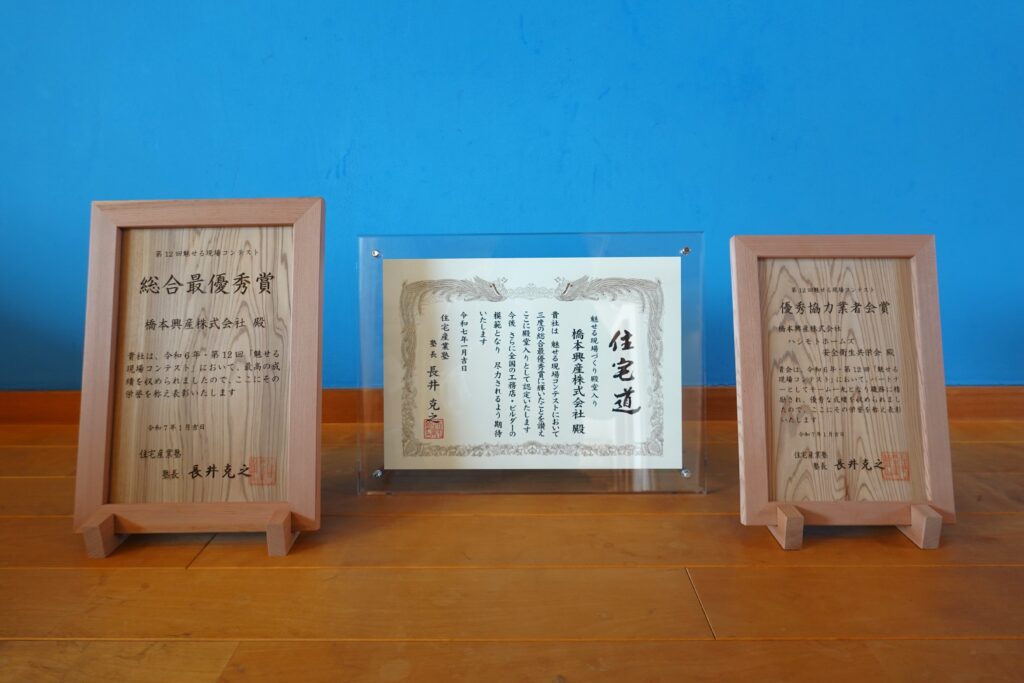 第12回魅せる現場コンテスト
総合最優秀賞
橋本興産株式会社 殿
貴社は、令和6年・第12回「魅せる
現場コンテスト」において、最高の成
績を収められましたので、ここにその
栄誉を称え表彰いたします
令和7年1月吉日
住宅産業塾
塾長 長井克之
住宅道
魅せる現場づくり殿堂入り
橋本興産株式会社 殿
貴社は 魅せる現場コンテストにおいて
三度の総合最優秀賞に輝いたことを讃え
ここに殿堂入りとして認定いたします
今後 さらに全国の工務店・ビルダーの
模範となり 尽力されるよう期待
いたします
令和七年一月吉日
住宅産業塾
塾長 長井 克之
第12回魅せる現場コンテスト
優秀協力業者会賞
橋本興産株式会社
ハシモトホームズ
安全衛生共栄会 殿
貴会は、令和6年・第12回「魅せる
現場コンテスト」において、パートナ
ーとしてチーム一丸となり職務に精
励され、優秀な成績を収められまし
たので、ここにその栄誉を称え表彰
いたします
令和7年1月吉日
住宅産業塾
塾長 長井克之